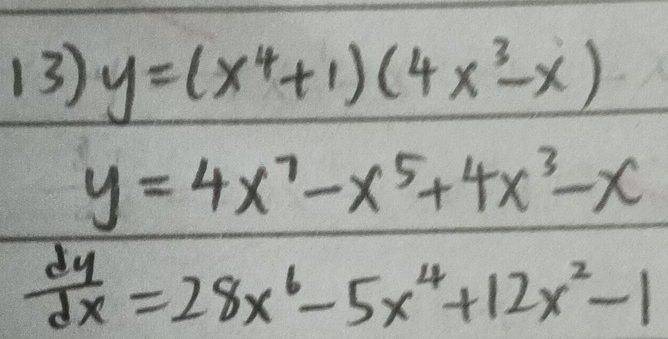 13) y=(x⁴+1)(4x³-x)
y = 4x⁷-x⁵+4x³-x
dy/dx = 28x⁶-5x⁴+12x²-1